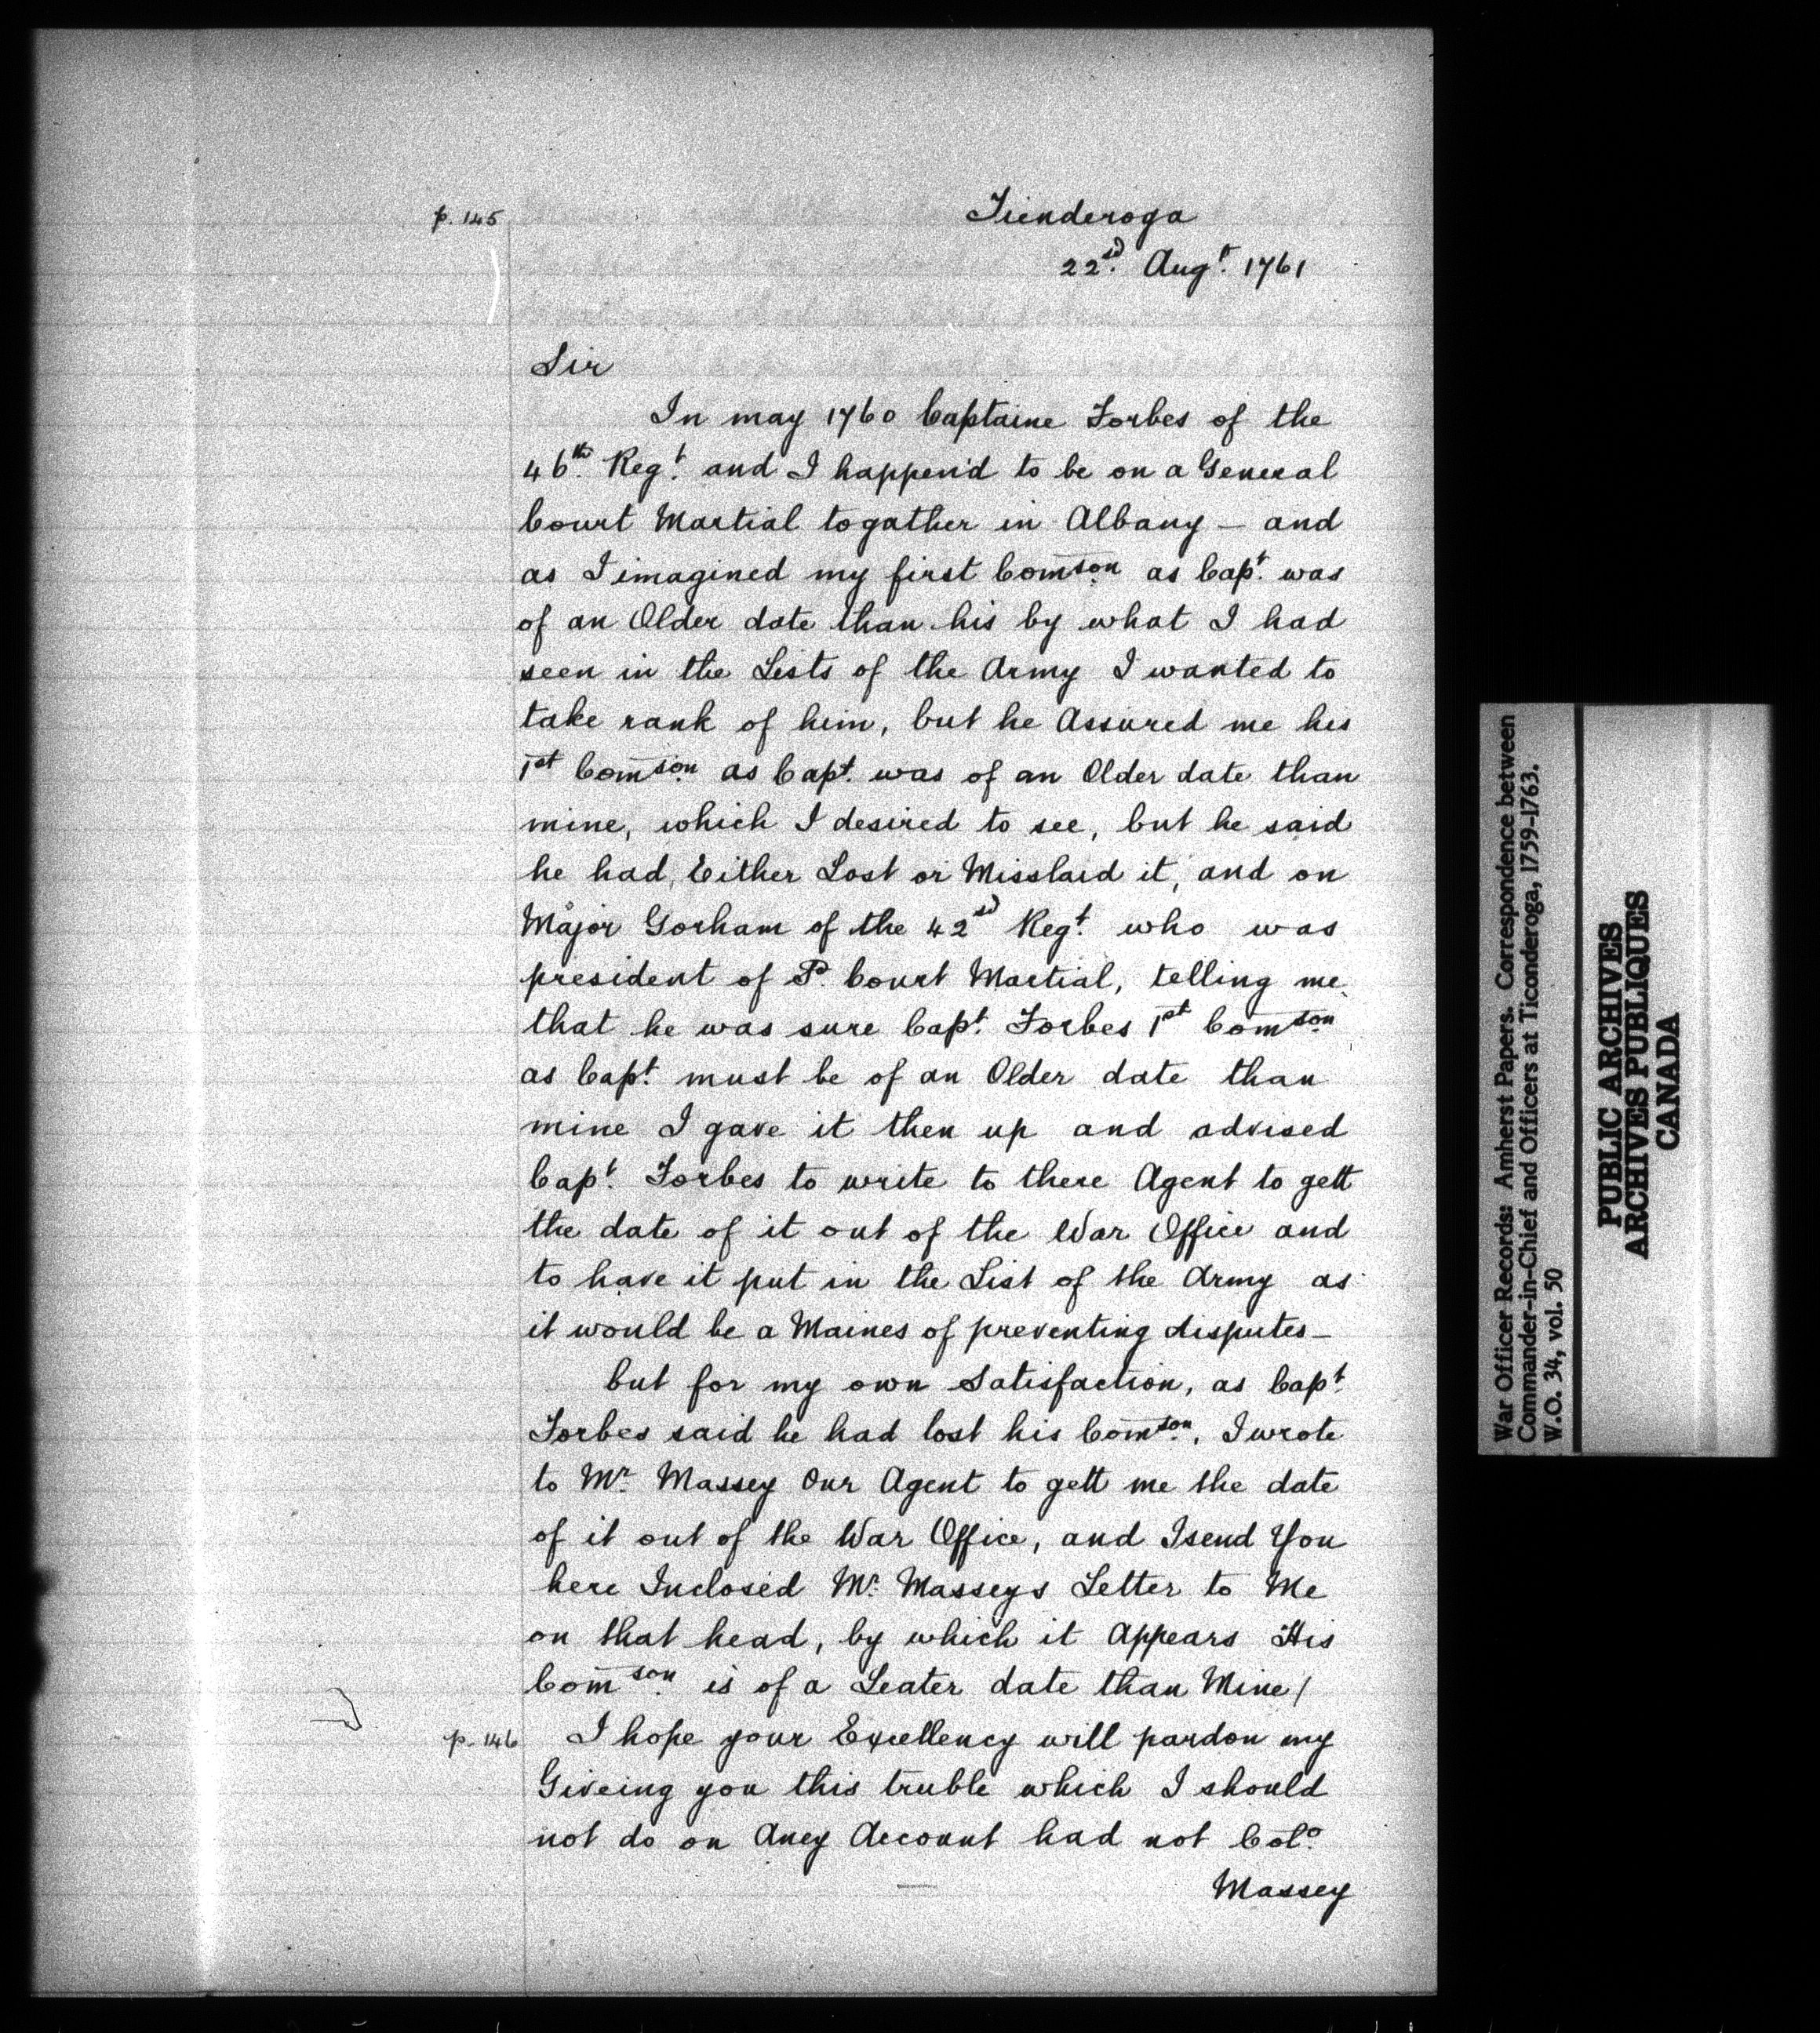 p. 145
Ticnderoga
22d. Augt. 1761
Sir
In may 1760 Captaine Forbes of the
46th. Regt. and I happen'd to be on a General
Court Martial togather in Albany — and
as I imagined my first Comson. as Capt. was
of an Older date than his by what I had
seen in the Lists of the Army I wanted to
take rank of him, but he Assured me his
1st Comson. as Capt. was of an Older date than
mine, which I desired to see, but he said
he had, Either Lost or Misslaid it, and on
Major Gorham of the 42d Regt. who was
president of Sd. Court Martial, telling me
that he was sure Capt. Forbes 1st Comson.
as Capt. must be of an Older date than
mine I gave it then up and advised
Capt. Forbes to write to there Agent to gett
the date of it out of the War Office and
to have it put in the List of the Army as
it would be a Maines of preventing disputes —
but for my own Satisfaction, as Capt.
Forbes said he had lost his Comson., I wrote
to Mr. Massey Our Agent to gett me the date
of it out of the War Office, and I send You
here Inclosed Mr. Masseys Letter to Me
on that head, by which it Appears His
Comson. is of a Leater date than Mine/
p. 146 I hope your Excellency will pardon my
Giveing you this truble which I should
not do on Aney Account had not Colo.
Massey
War Officer Records: Amherst Papers. Correspondence between
Commander-in-Chief and Officers at Ticonderoga, 1759-1763.
W.O. 34, vol. 50
PUBLIC ARCHIVES
ARCHIVES PUBLIQUES
CANADA